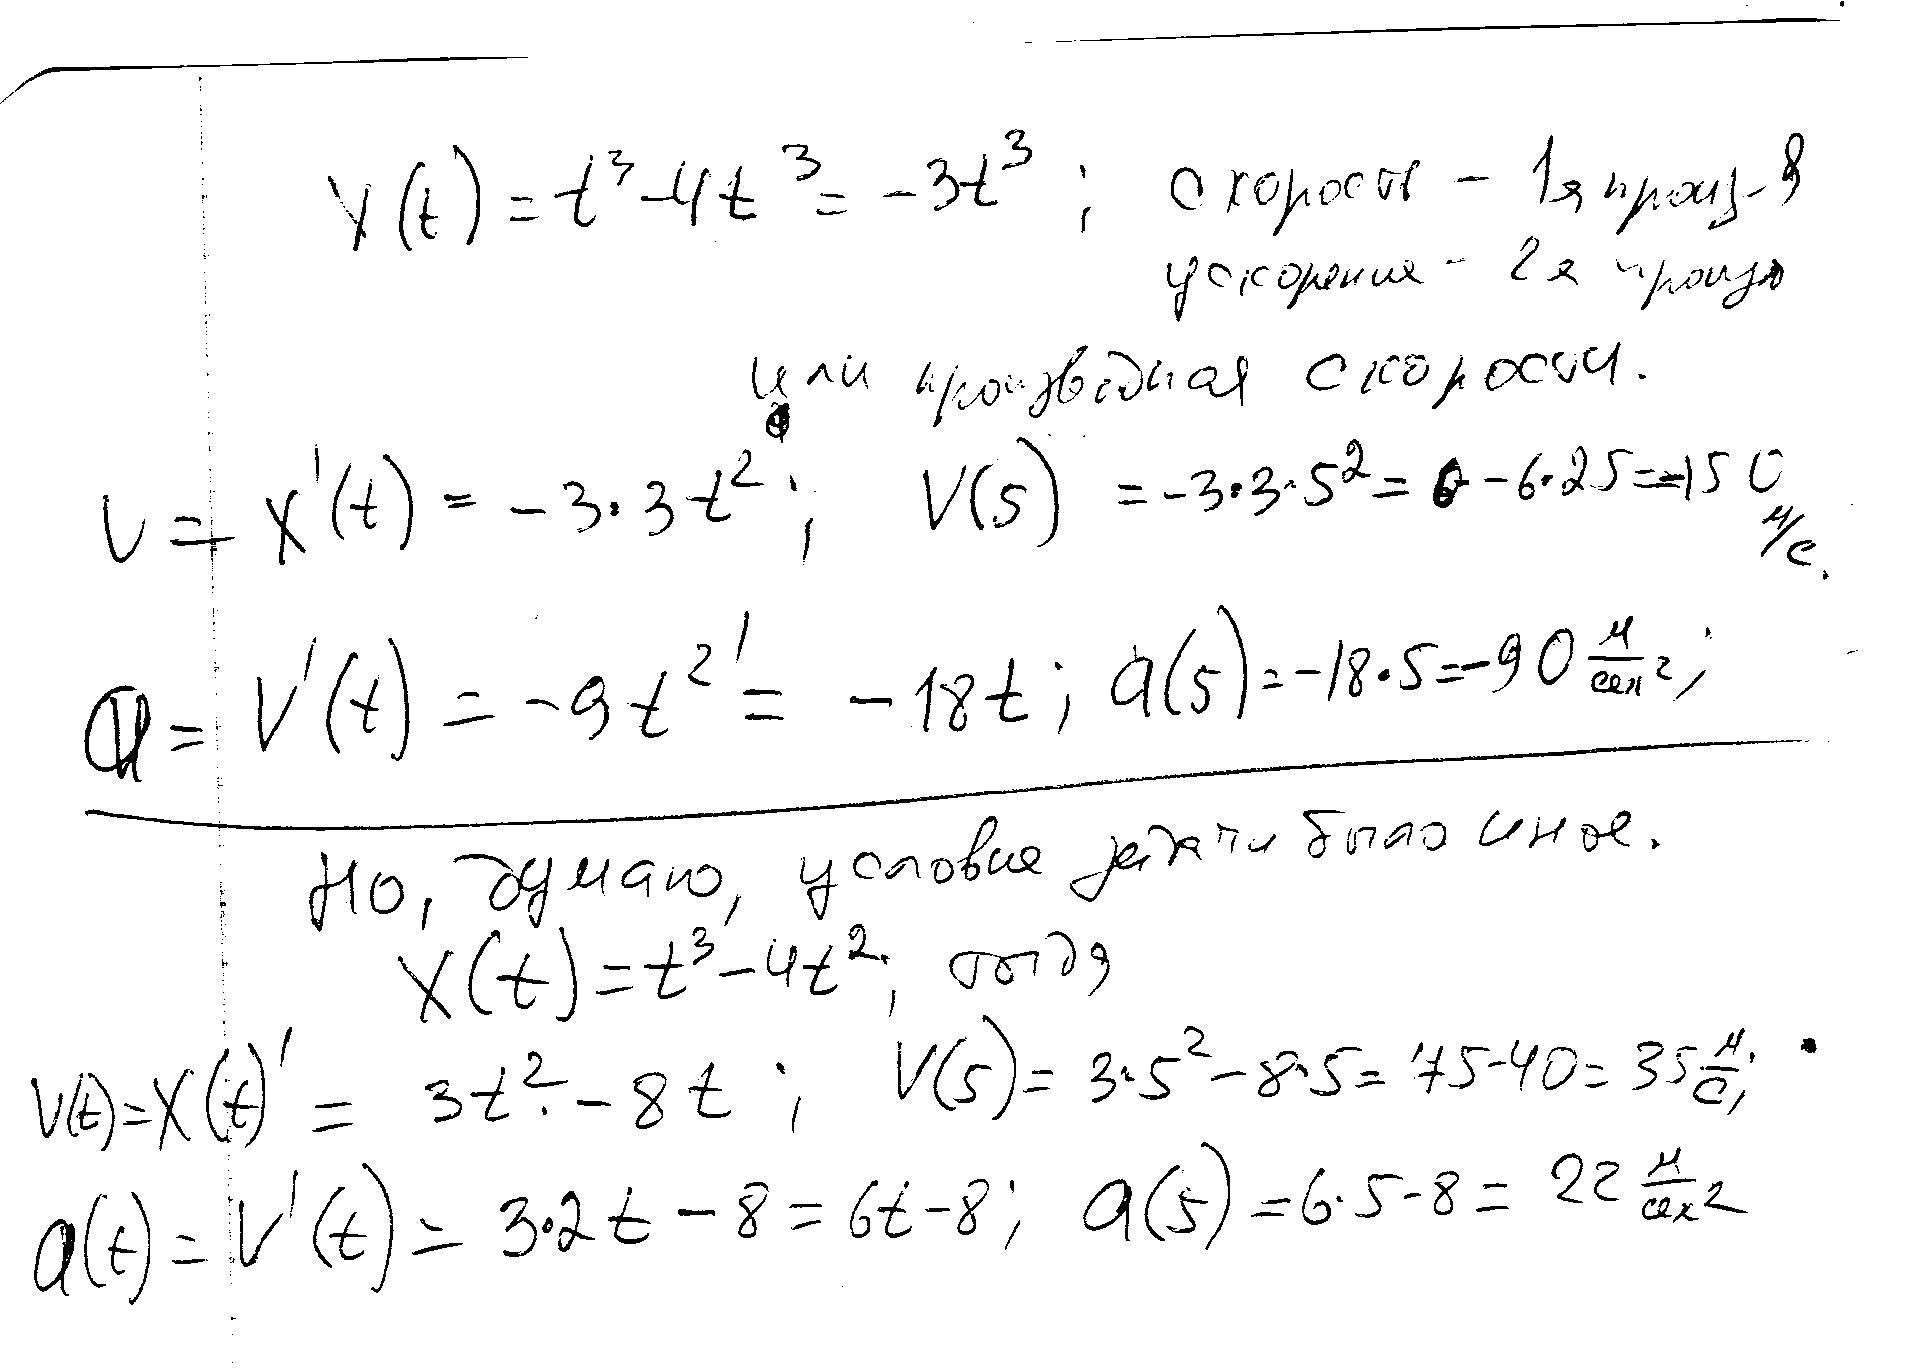 X(t) = t³-4t³ = -3t³ ; скорость - 1я произ-я
ускорение - 2я произв
или производная скорости.
V = X'(t) = -3·3t² ; V(5) = -3·3·5² = -6·25 = -150 м/с.
a = V'(t) = -9t²' = -18t ; a(5) = -18·5 = -90 м/сек² ;
Но, думаю, условие задачи было иное.
X(t) = t³-4t² ; тогда
V(t) = X(t)' = 3t² - 8t ; V(5) = 3·5² - 8·5 = 75-40 = 35 м/с ;
a(t) = V'(t) = 3·2t - 8 = 6t-8 ; a(5) = 6·5-8 = 22 м/сек²